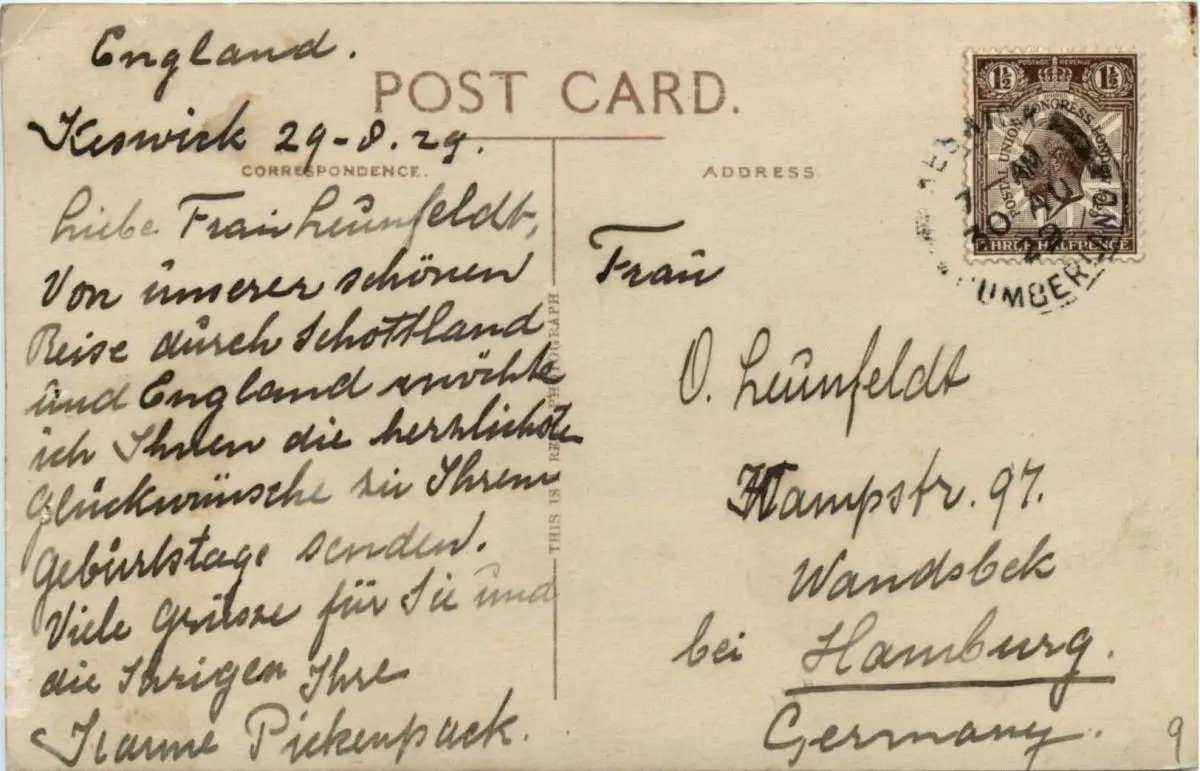 England.
POST CARD.
Keswick 29-8.29.
CORRESPONDENCE.
Liebe Frau Leunfeldt,
Von unserer schönen
Reise durch Schottland
und England möchte
ich Ihnen die herzlichsten
Glückwünsche zu Ihrem
Geburtstage senden.
Viele Grüsse für Sie und
die Ihrigen Ihre
Pickenpack.
THIS IS A REAL PHOTOGRAPH
ADDRESS
Frau
O. Leunfeldt
Kampstr. 97.
Wandsbek
bei Hamburg.
Germany.
9
POSTAGE REVENUE
1½ 1½
POSTAL UNION CONGRESS LONDON 1929
THREE HALFPENCE
KESWICK
30 AU
29
CUMBERLAND